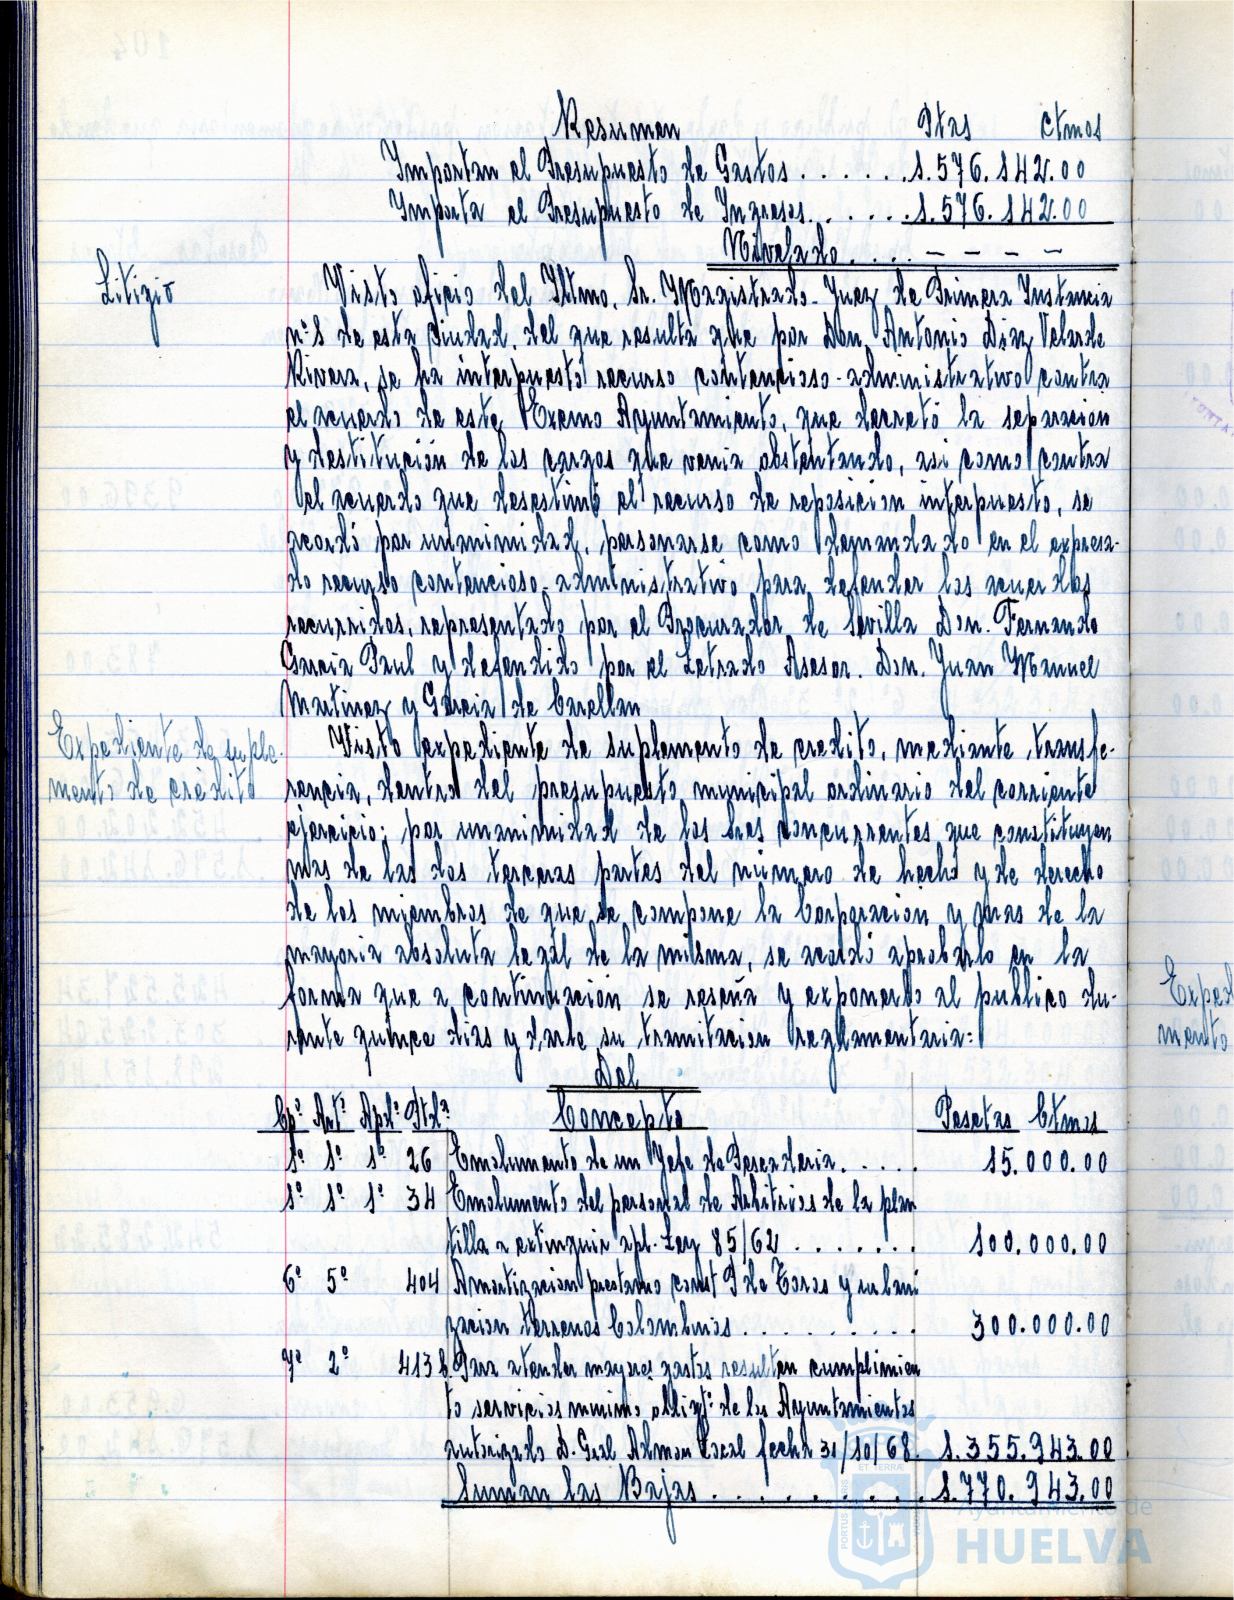 Resumen Ptas ctmos
Importan el Presupuesto de Gastos . . . . . . . 1.576.142.00
Importa el Presupuesto de Ingresos . . . . . . 1.576.142.00
Nivelado . . . . — — — —
Litigio
Visto oficio del Iltmo. Sr. Magistrado-Juez de Primera Instancia
nº 1 de esta Ciudad, del que resulta que por Don Antonio Diaz Velarde
Rivera, se ha interpuesto recurso contencioso-administrativo contra
el acuerdo de este Excmo Ayuntamiento, que decretó la separación
y destitución de los cargos que venia obstentando, asi como contra
el acuerdo que desestimó el recurso de reposicion interpuesto, se
acordó por unanimidad, personarse como demandado en el expresa-
do recurso contencioso-administrativo para defender los acuerdos
recurridos, representado por el Procurador de Sevilla Don. Fernando
Garcia Paul y defendido por el Letrado Asesor. Don. Juan Manuel
Martinez y Garcia de Casellan
Expediente de suple-
mento de crédito
Visto expediente de suplemento de credito, mediante transfe-
rencia, dentro del presupuesto municipal ordinario del corriente
ejercicio; por unanimidad de los Sres concurrentes que constituyen
mas de las dos terceras partes del número de hecho y de derecho
de los miembros de que se compone la Corporacion y mas de la
mayoria absoluta legal de la misma, se acordó aprobarlo en la
forma que a continuacion se reseña y exponerlo al publico du-
rante quince dias y darle su tramitacion reglamentaria:
Del
Cpº Artº Apdº Ptdª Concepto Pesetas Ctmos
1º 1º 1º 26 Emolumento de un Jefe de Pescaderia . . . . . 15.000.00
1º 1º 1º 34 Emolumento del personal de Arbitrios de la plan
tilla a extinguir apl. Ley 85/62 . . . . . . . 100.000.00
6º 5º 404 Amortizacion prestamo const P de Toros y urbani
zacion terrenos Colombinos . . . . . . . . . . 300.000.00
7º 2º 413 b Para atender mayores gastos resulten cumplimien
to servicios minimo obligtº de los Ayuntamientos
autorizado D. Gral Admon Local fecha 31/10/68. 1.355.943.00
Suman las Bajas . . . . . . . . . . . 1.770.943.00
Ayuntamiento de
HUELVA